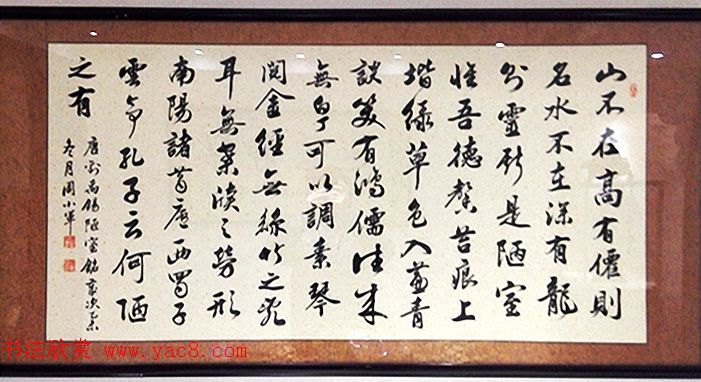 山不在高有僊則
名水不在深有龍
則靈斯是陋室
惟吾德馨苔痕上
堦綠草色入簾青
談笑有鴻儒往來
無白丁可以調素琴
閱金經無絲竹之亂
耳無案牘之勞形
南陽諸葛廬西蜀子
雲亭孔子云何陋
之有
唐劉禹錫陋室銘歲次乙未
冬月周小軍
书法欣赏 www.yac8.com